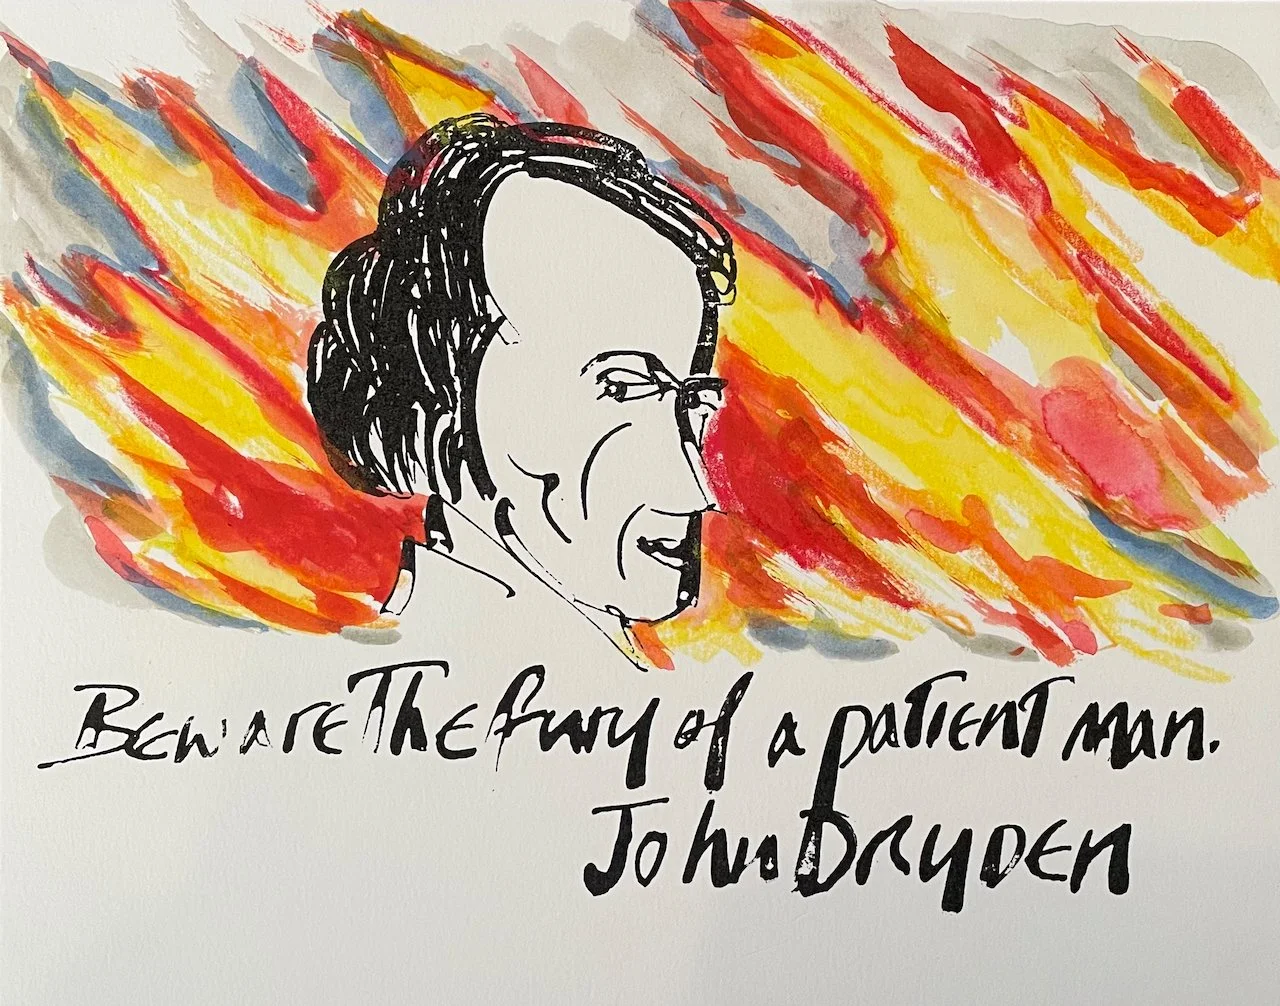 Beware The fury of a patient man.
John Dryden